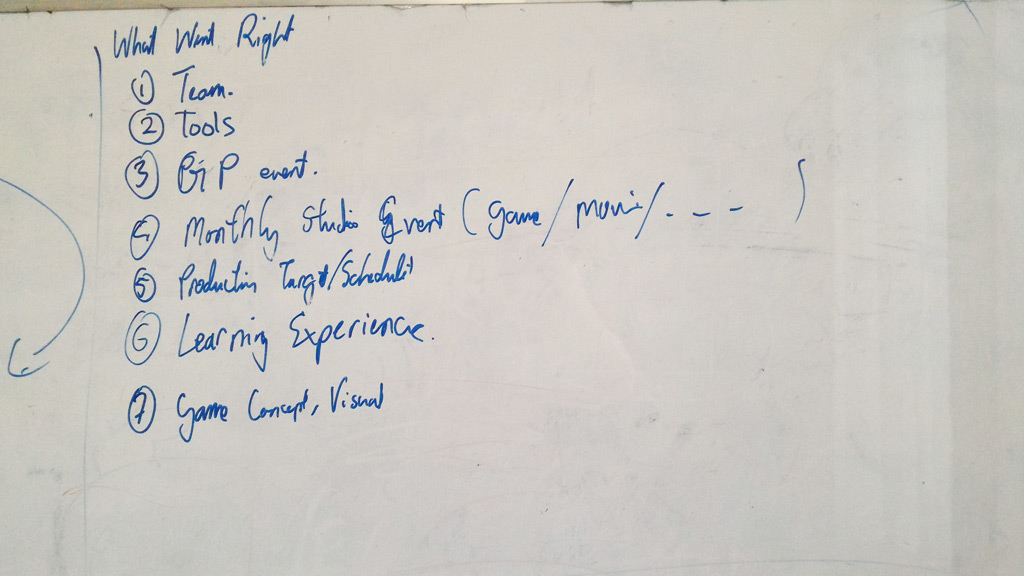 What Went Right
① Team.
② Tools
③ event.
④ Monthly Studio Event (game/movie/. - - - )
⑤ Production Target/Schedule
⑥ Learning Experience.
⑦ Game Concept, Visual